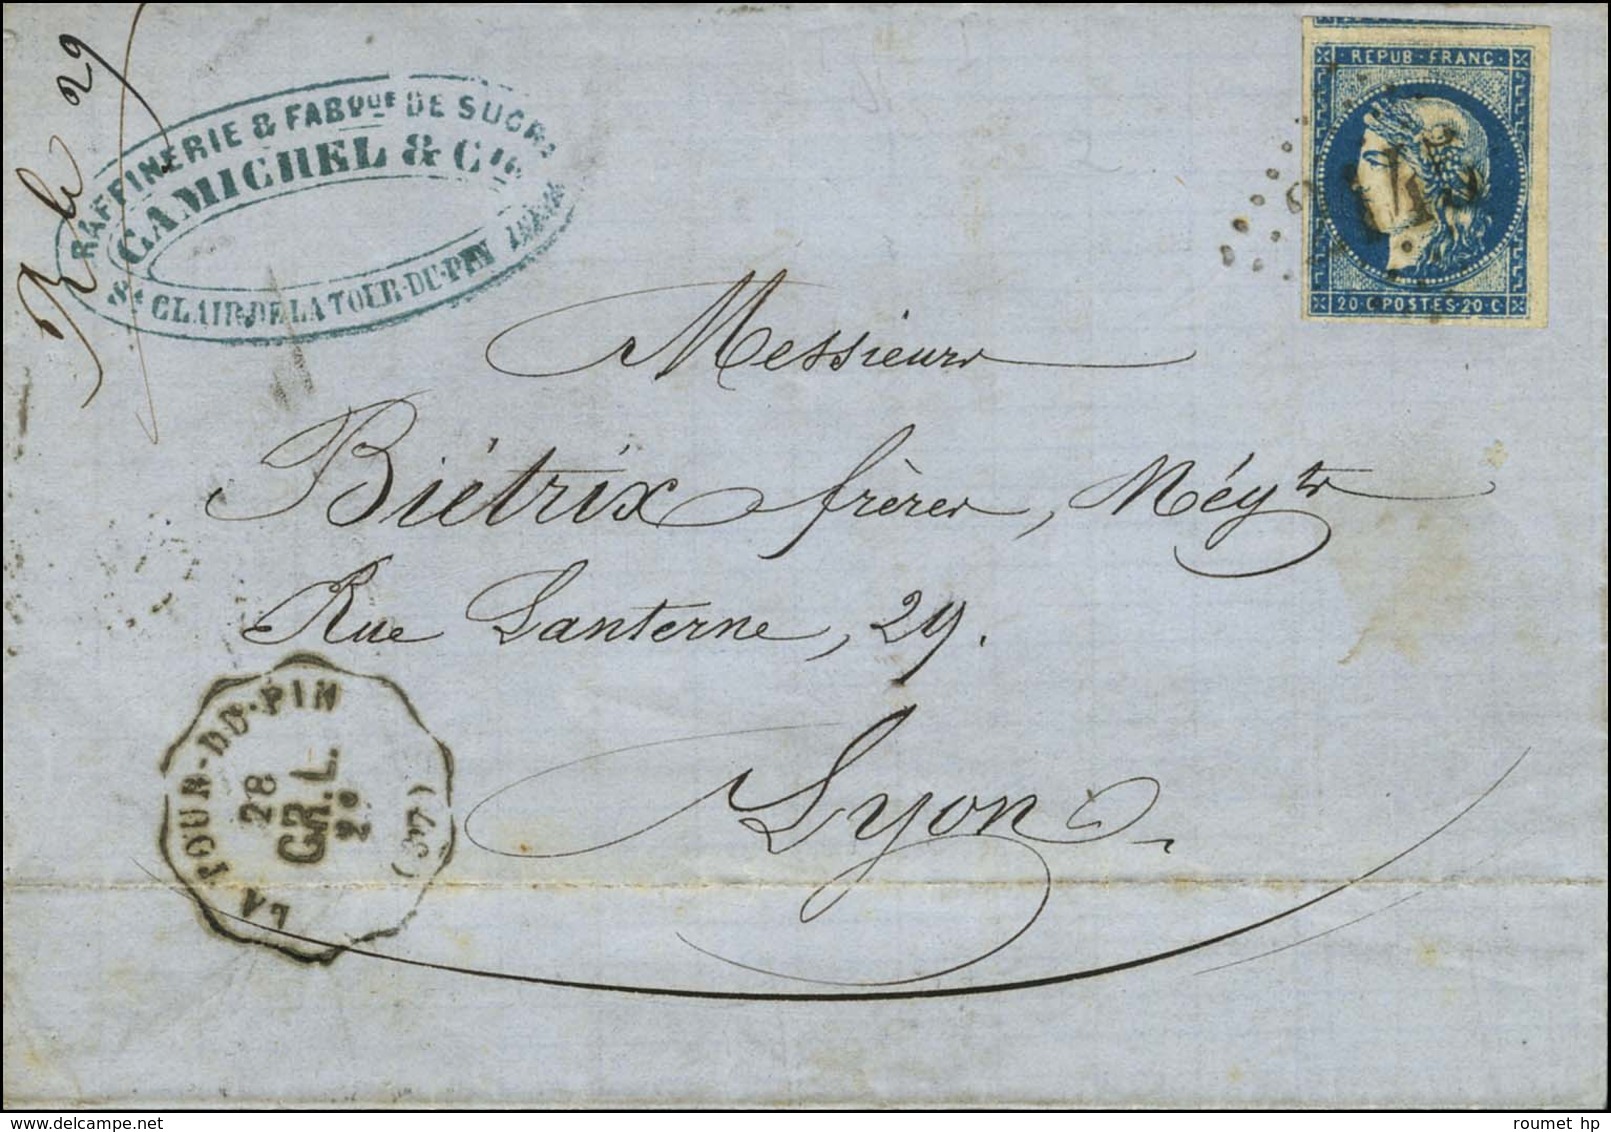 R le 29
RAFFINERIE & FABQUE DE SUCRE
CAMICHEL & Cie
St CLAIR-DE LA TOUR-DU-PIN
REPUB·FRANC·
20·C·POSTES·20·C
Messieurs
Biétrix frères, Négts
Rue Lanterne, 29.
Lyon
LA TOUR-DU-PIN
28
GR.L.
2e
(37)
roumet hp